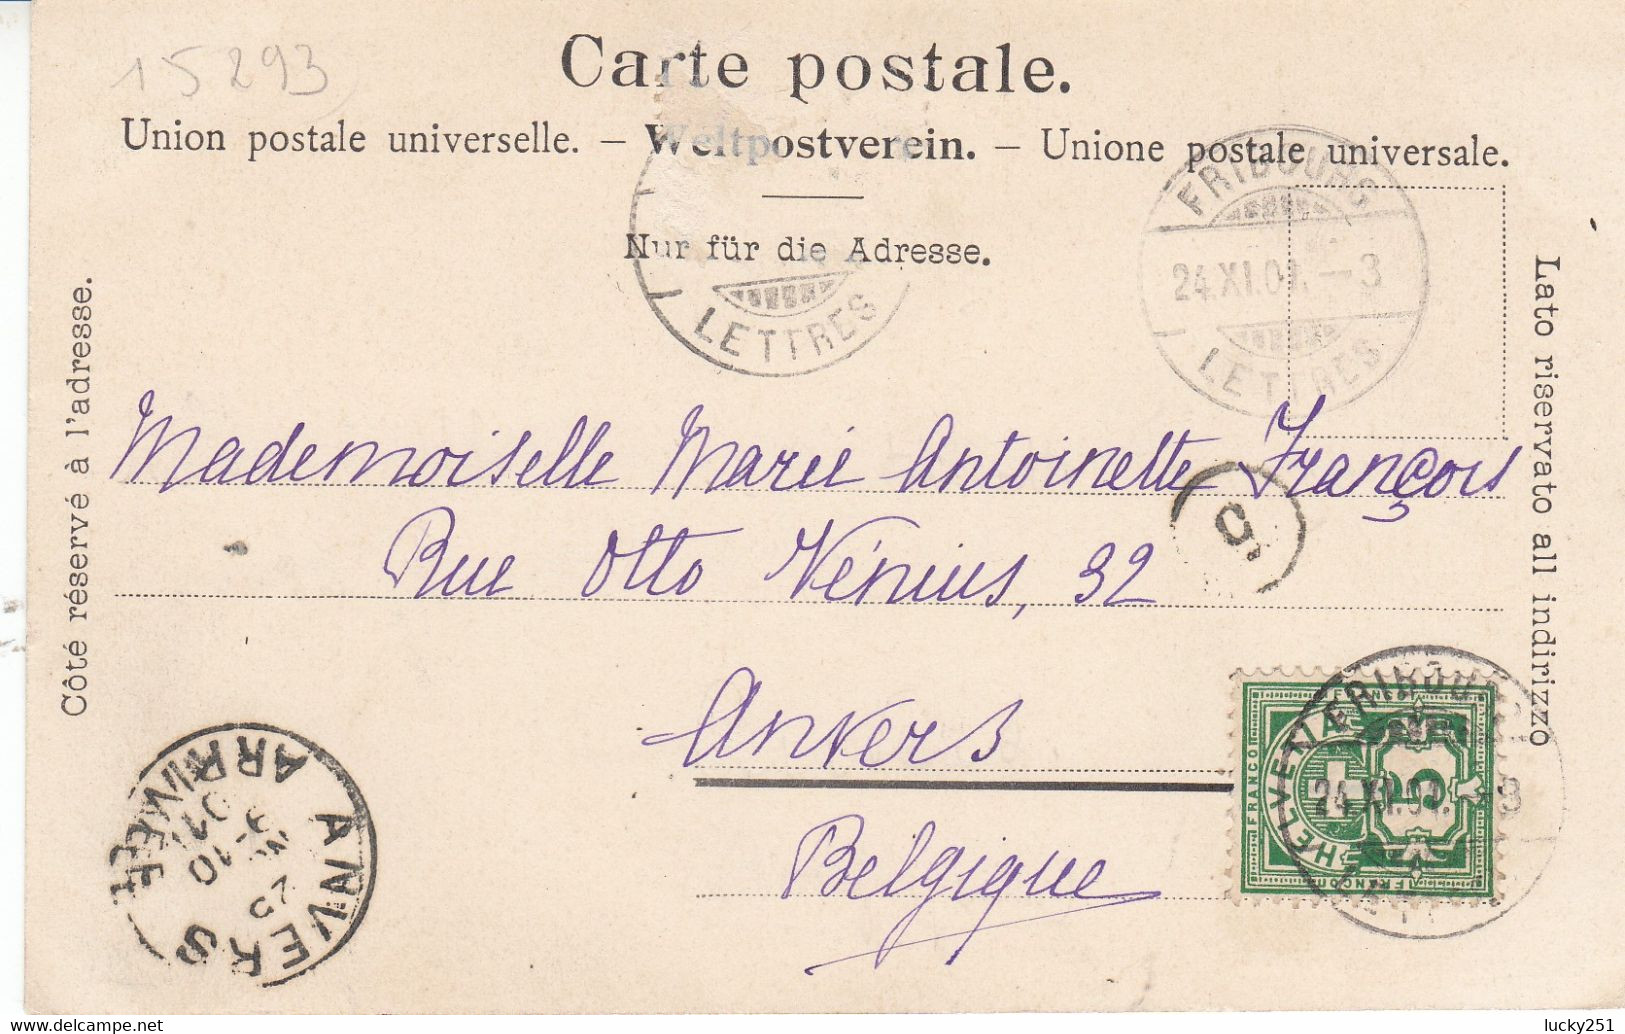 15293
Carte postale.
Union postale universelle. – Weltpostverein. – Unione postale universale.
Nur für die Adresse.
Côté réservé à l'adresse.
Lato riservato all indirizzo
LETTRES
FRIBOURG
24.XI.01.–3
LETTRES
Mademoiselle Marie Antoinette François
Rue Otto Vénius, 32
Anvers
Belgique
FRANCO
HELVETIA
5
FRANCO
FRANCO
FRIBOURG
24.XI.01.–3
ANVERS
ARRIVÉE
lucky251